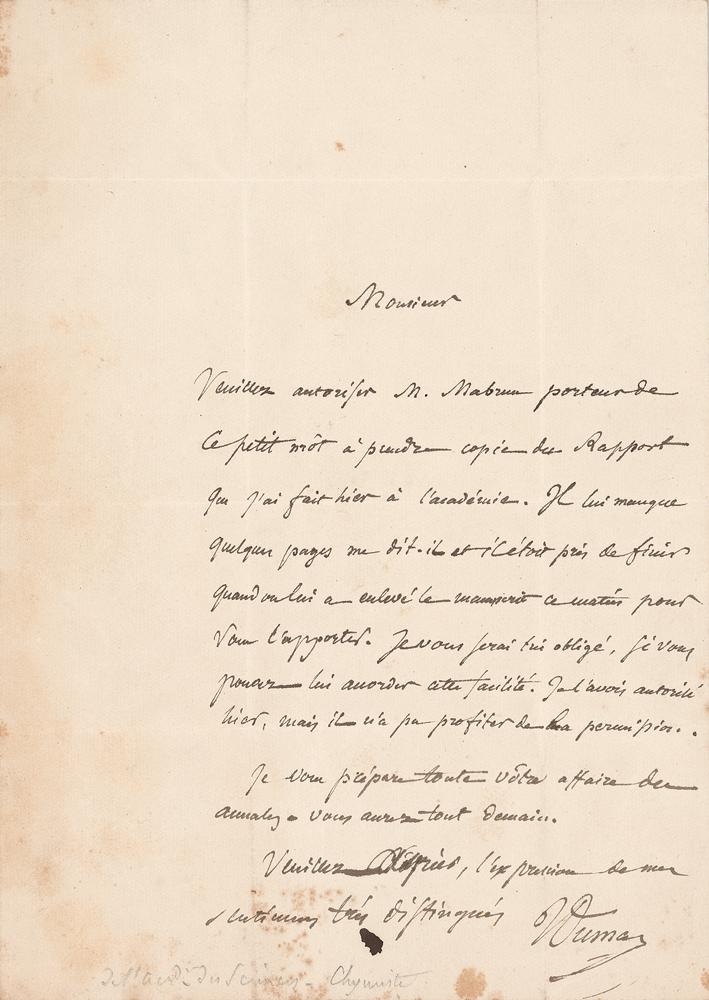 Monsieur
Veuillez autoriser M. Mabrun porteur de
ce petit môt à prendre copie du Rapport
que j'ai fait hier à l'académie. Il lui manque
quelques pages me dit-il et il étoit près de finir
quand on lui a enlevé le manuscrit ce matin pour
vous l'apporter. Je vous serai très obligé, si vous
pouvez lui accorder cette facilité. Je l'avois autorisé
hier, mais il n'a pu profiter de la permission.
Je vous prépare toute vôtre affaire des
annales. vous aurez tout demain.
Veuillez, l'expression de mes
sentimens très distingués
Dumas
de l'Acad. des Sciences - Chymiste